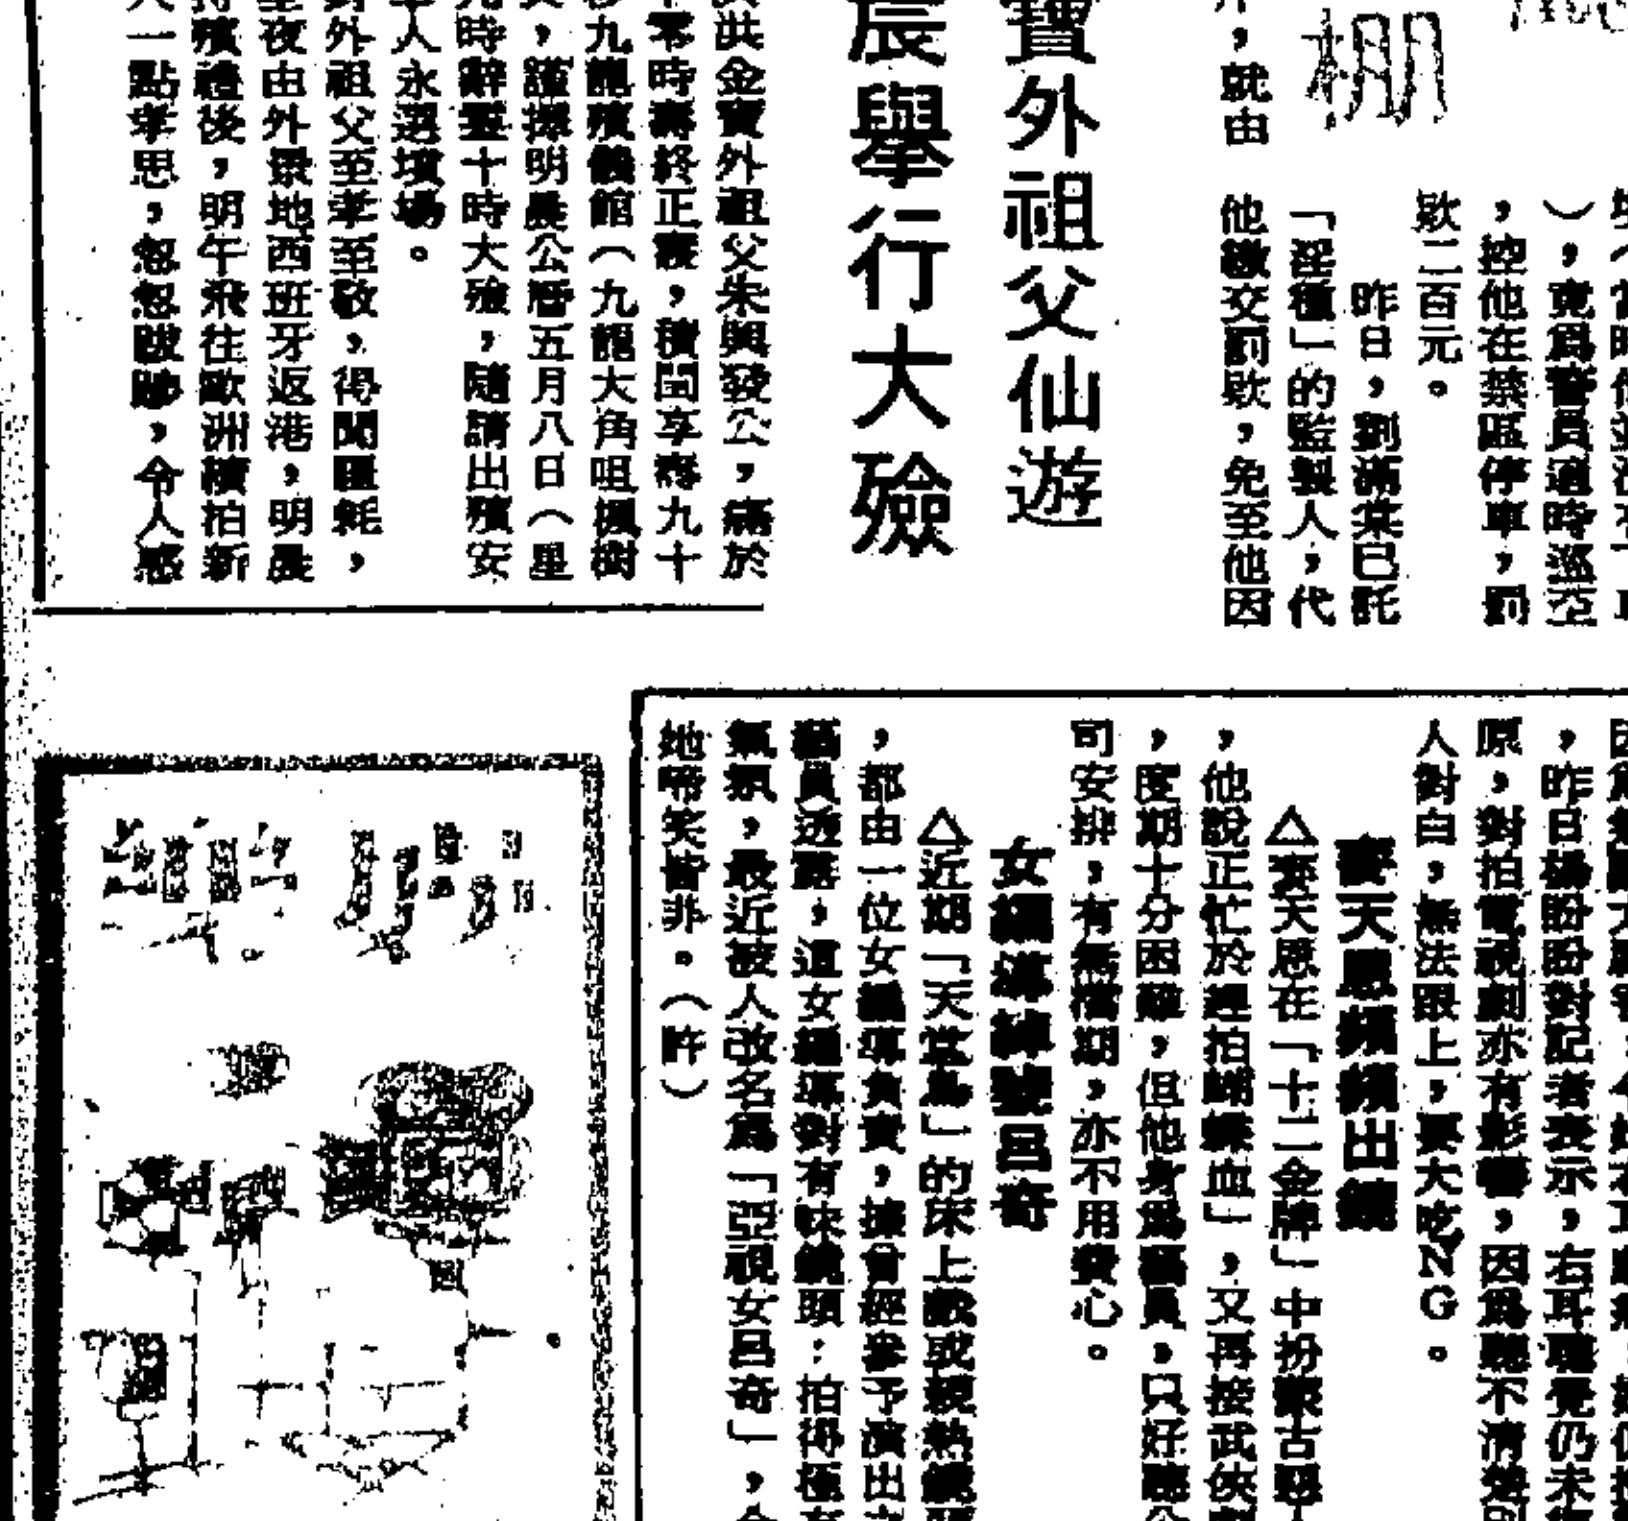 棚
，就由
），竟為警員適時巡至
，控他在禁區停車，罰
欵二百元。
昨日，劉滿棠已託
「淫種」的監製人，代
他繳交罰欵，免至他因
寶外祖父仙遊
晨舉行大殮
洪金寶外祖父朱與發公，痛於
零時壽終正寢，積閏享壽九十
九龍殯儀館（九龍大角咀楓樹
，謹擇明晨公曆五月八日（星
時辭靈十時大殮，隨請出殯安
人永遠墳場。
外祖父至孝至敬，得聞噩耗，
夜由外景地西班牙返港，明晨
殯禮後，明午飛往歐洲續拍新
一點孝思，怱怱跋涉，令人感
，昨日楊盼盼對記者表示，右耳聽覺仍未
原，對拍電視劇亦有影響，因為聽不清楚別
人對白，無法跟上，要大吃NG。
麥天恩頻頻出鏡
△麥天恩在「十二金牌」中扮蒙古
，他說正忙於趕拍「蝴蝶血」，又再接武俠
，度期十分困難，但他身為藝員，只好聽公
司安排，有無擋期，亦不用費心。
女編導綽號呂奇
△近期「天堂鳥」的床上戲或親熱鏡頭
，都由一位女編導負責，據曾經參予演出
藝員透露，這女編導對有味鏡頭：拍得極有
氣氛，最近被人改名為「亞視女呂奇」，令
她啼笑皆非。（許）